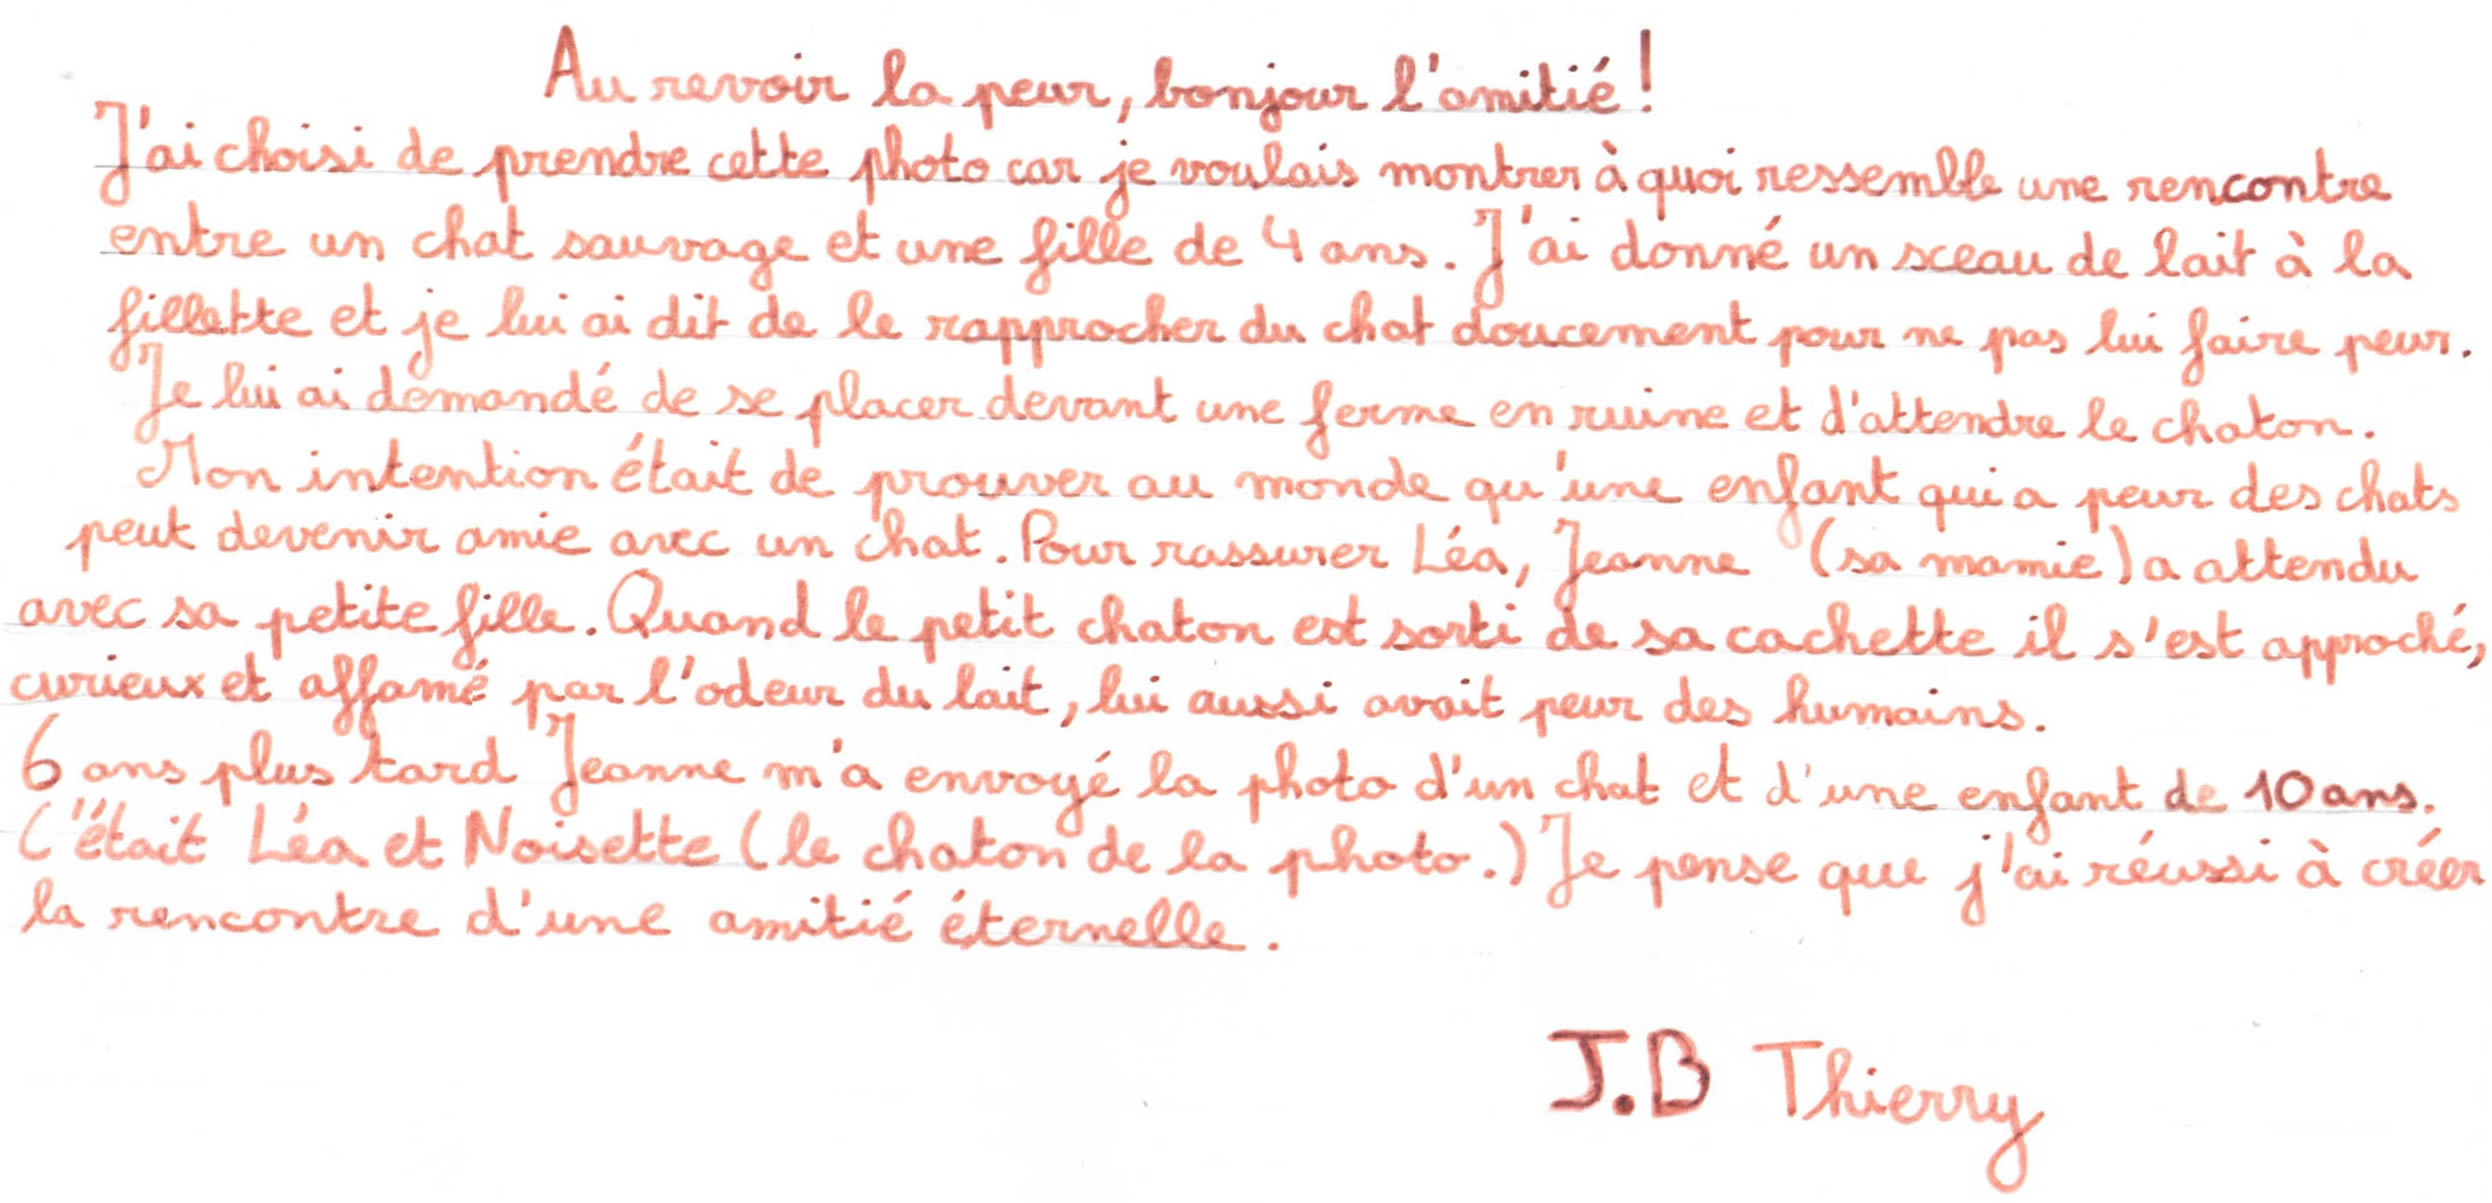 Au revoir la peur, bonjour l'amitié !
J'ai choisi de prendre cette photo car je voulais montrer à quoi ressemble une rencontre
entre un chat sauvage et une fille de 4 ans. J'ai donné un sceau de lait à la
fillette et je lui ai dit de le rapprocher du chat doucement pour ne pas lui faire peur.
Je lui ai demandé de se placer devant une ferme en ruine et d'attendre le chaton.
Mon intention était de prouver au monde qu'une enfant qui a peur des chats
peut devenir amie avec un chat. Pour rassurer Léa, Jeanne (sa mamie) a attendu
avec sa petite fille. Quand le petit chaton est sorti de sa cachette il s'est approché,
curieux et affamé par l'odeur du lait, lui aussi avait peur des humains.
6 ans plus tard Jeanne m'a envoyé la photo d'un chat et d'une enfant de 10 ans.
C'était Léa et Noisette (le chaton de la photo.) Je pense que j'ai réussi à créer
la rencontre d'une amitié éternelle.
J.B Thierry